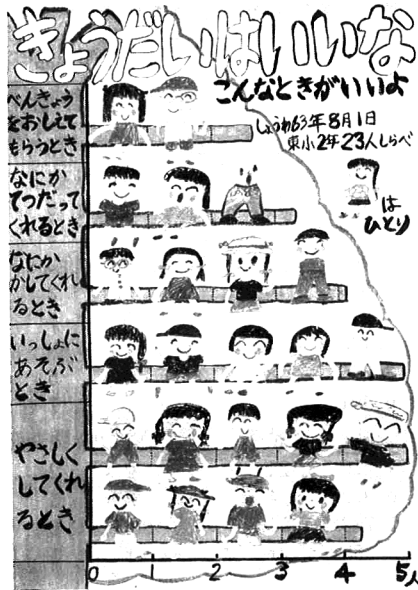 きょうだいはいいな
こんなときがいいよ
しょうわ63年8月1日
東小2年23人しらべ
は
ひとり
べんきょう
をおしえて
もらうとき
なにか
てつだって
くれるとき
なにか
かしてくれ
るとき
いっしょに
あそぶ
とき
やさしく
してくれ
るとき
0 1 2 3 4 5人